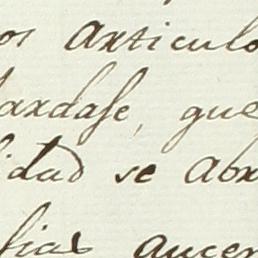 os articulo
dardase, que
idad se abr
sias aucen